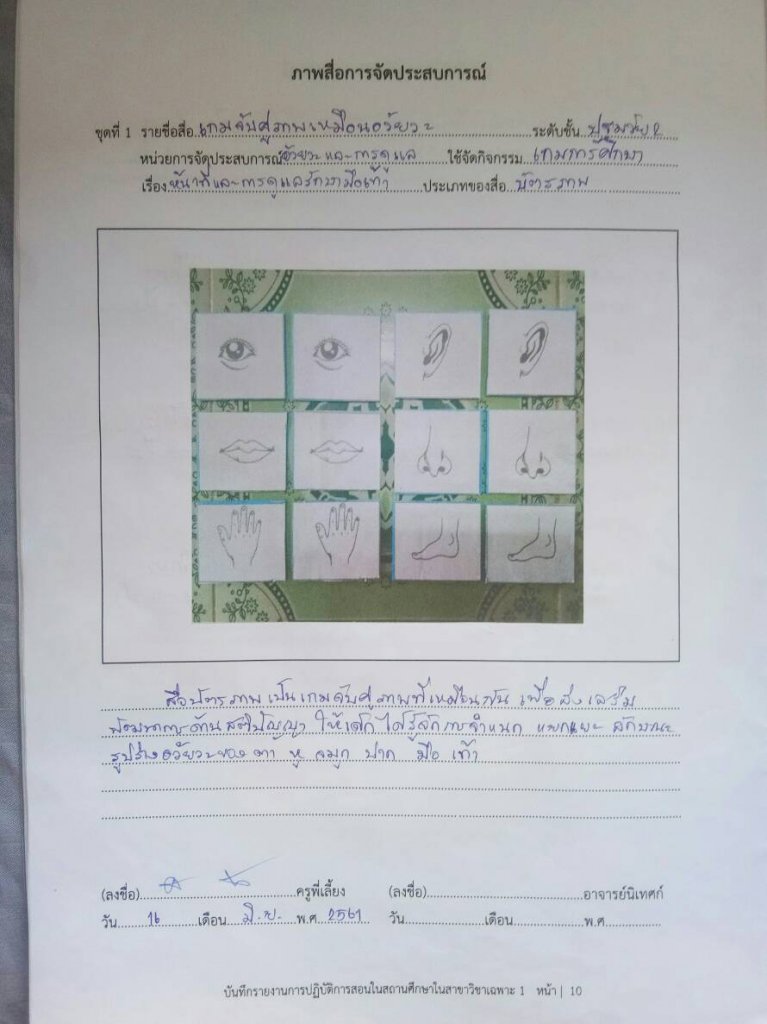 ภาพสื่อการจัดประสบการณ์
ชุดที่ 1 รายชื่อสื่อ เกมจับคู่ภาพเหมือนอวัยวะ ระดับชั้น ปฐมวัย 2
หน่วยการจัดประสบการณ์ อวัยวะและการดูแล ใช้จัดกิจกรรม เกมการศึกษา
เรื่อง หน้าที่และการดูแลรักษามือเท้า ประเภทของสื่อ บัตรภาพ
สื่อบัตรภาพเป็นเกมจับคู่ภาพที่เหมือนกัน เพื่อส่งเสริม
พัฒนาการด้านสติปัญญา ให้เด็กได้รู้จักการจำแนก แยกแยะ ลักษณะ
รูปร่างอวัยวะของ ตา หู จมูก ปาก มือ เท้า
(ลงชื่อ) ครูพี่เลี้ยง (ลงชื่อ) อาจารย์นิเทศก์
วัน 16 เดือน มิ.ย. พ.ศ. 2561 วัน เดือน พ.ศ.
บันทึกรายงานการปฏิบัติการสอนในสถานศึกษาในสาขาวิชาเฉพาะ 1 หน้า | 10